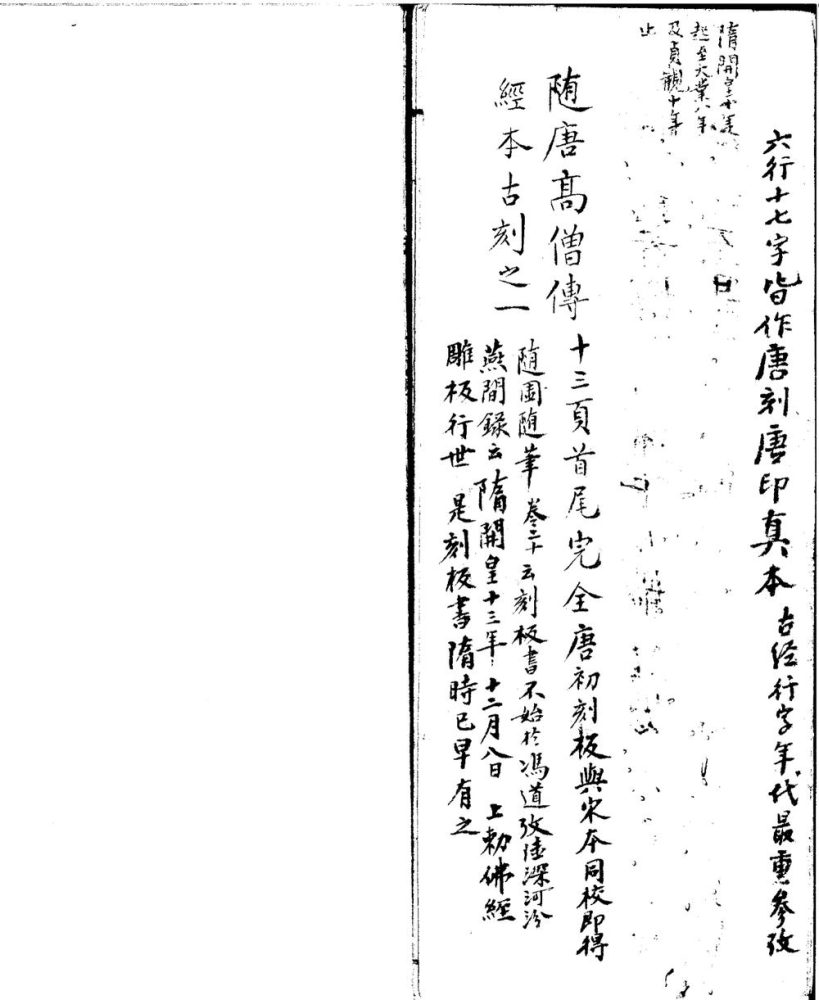 六行十七字皆作唐刻唐印真本 古经行字年代最重参攷
隋開皇
起至大業八年
及貞觀十年
止
随唐髙僧傳
十三頁首尾完全唐初刻板與宋本同校即得
經本古刻之一
随園随筆 卷二十云刻板書不始於馮道攷陸深河汾
燕間錄云隋開皇十三年十二月八日 上勅佛經
雕板行世 是刻板書隋時已早有之